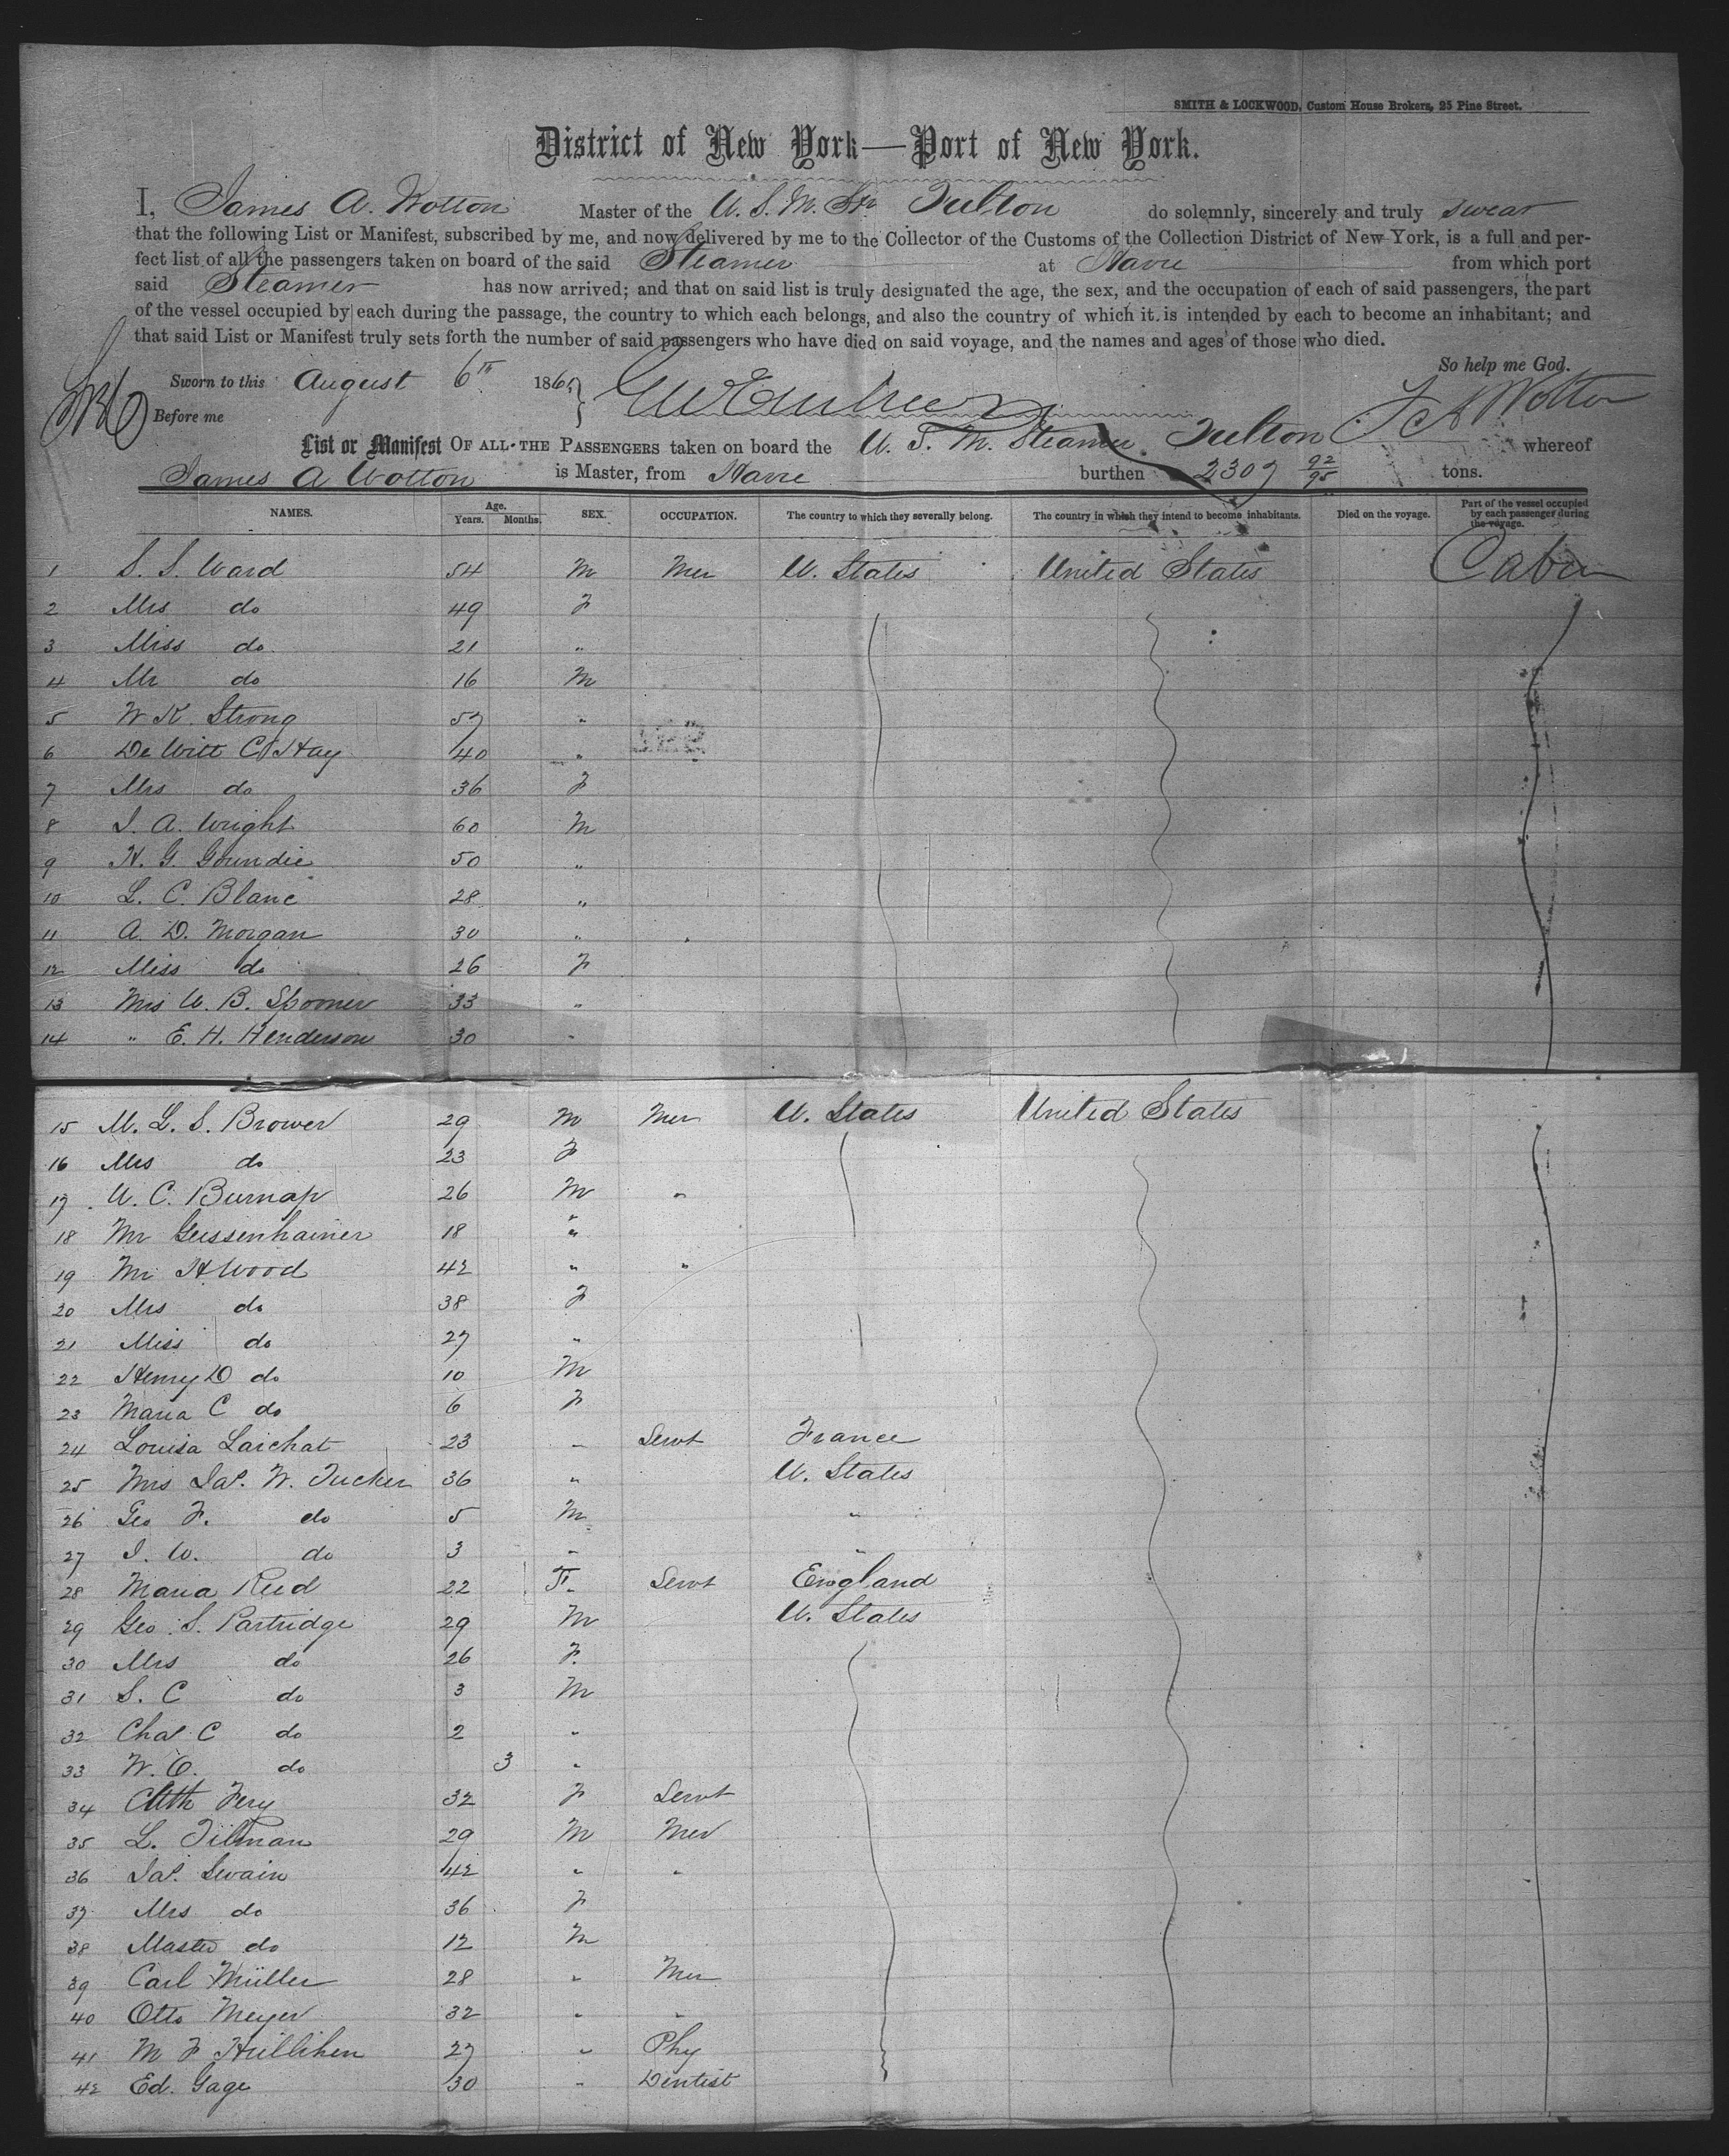 SMITH & LOCKWOOD, Custom House Brokers, 25 Pine Street.
District of New York—Port of New York.
I, James A. Wotton Master of the U. S. M. Str Fulton do solemnly, sincerely and truly swear
that the following List or Manifest, subscribed by me, and now delivered by me to the Collector of the Customs of the Collection District of New York, is a full and per-
fect list of all the passengers taken on board of the said Steamer at Havre from which port
said Steamer has now arrived; and that on said list is truly designated the age, the sex, and the occupation of each of said passengers, the part
of the vessel occupied by each during the passage, the country to which each belongs, and also the country of which it is intended by each to become an inhabitant; and
that said List or Manifest truly sets forth the number of said passengers who have died on said voyage, and the names and ages of those who died.
So help me God.
Sworn to this August 6th 186
Before me
Wotton
List or Manifest OF ALL THE PASSENGERS taken on board the U. S. M. Steamer Fulton whereof
James A Wotton is Master, from Havre burthen 2307 92/95 tons.
NAMES. Age. Years. Months. SEX. OCCUPATION. The country to which they severally belong. The country in which they intend to become inhabitants. Died on the voyage. Part of the vessel occupied by each passenger during the voyage.
1 S. S. Ward 54 M Mer U. States United States Cabin
2 Mrs do 49 F
3 Miss do 21 "
4 Mr do 16 M
5 W K Strong 57 "
6 De Witt C Hay 40 "
7 Mrs do 36 F
8 J. A. Wright 60 M
9 H. G. Goundie 50 "
10 L. C. Blanc 28 "
11 A. D. Morgan 30 "
12 Miss do 26 F
13 Mrs W. B. Spooner 33 "
14 " E. H. Henderson 30 "
15 M. L. S. Brower 29 M Mer U. States United States
16 Mrs do 23 F
17 U. C. Burnap 26 M "
18 Mr Geissenhainer 18 "
19 Mr H Wood 42 " "
20 Mrs do 38 F
21 Miss do 27 "
22 Henry D do 10 M
23 Maria C do 6 F
24 Louisa Larchat 23 " Servt France
25 Mrs Jas. W. Tucker 36 " U. States
26 Geo F. do 5 M "
27 J. W. do 3 " "
28 Maria Reid 22 F. Servt England
29 Geo. S. Partridge 29 M U. States
30 Mrs do 26 F.
31 S. C do 3 M
32 Chas C do 2 "
33 W. O. do 3 "
34 Cath Fery 32 F Servt
35 L. Tilman 29 M Mer
36 Jas. Swain 42 " "
37 Mrs do 36 F
38 Master do 12 M
39 Carl Müller 28 " Mer
40 Otto Meyer 32 " "
41 M F Hulliken 27 " Phy
42 Ed. Gage 30 " Dentist